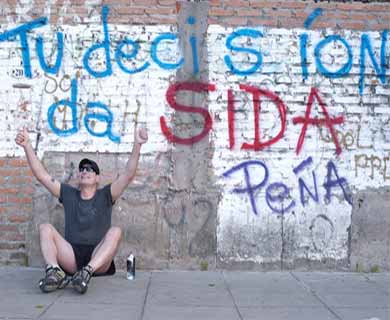 Tu decisión
da SIDA
PeÑA